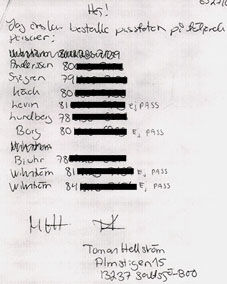 Hej!
Jag önskar beställa pusstoten på följande
Personer:
Andersson 80
Sjögren 79
Koch 80
Levin 81 Ej PASS
Lundberg 78
Borg 80 Ej PASS
Bjuhr 78
Wikström 81 Ej PASS
Wikström 84 Ej PASS
Tomas Hellström
Almstigen 15
13237 Saltsjö-Boo